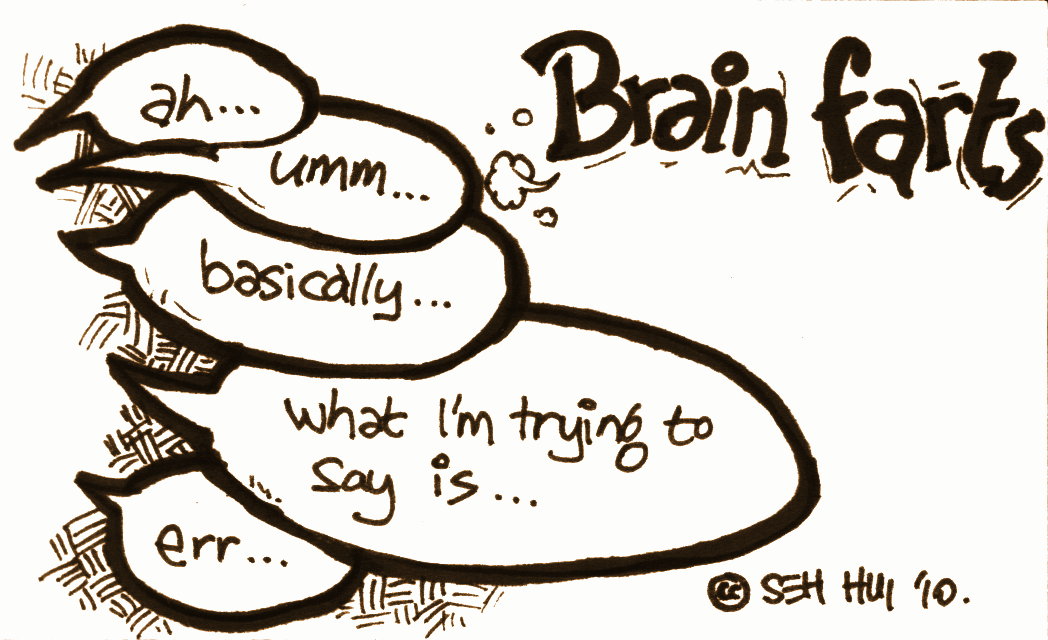 Brain farts
ah...
umm...
basically...
what I'm trying to
say is...
err...
cc SEH HUI '10.